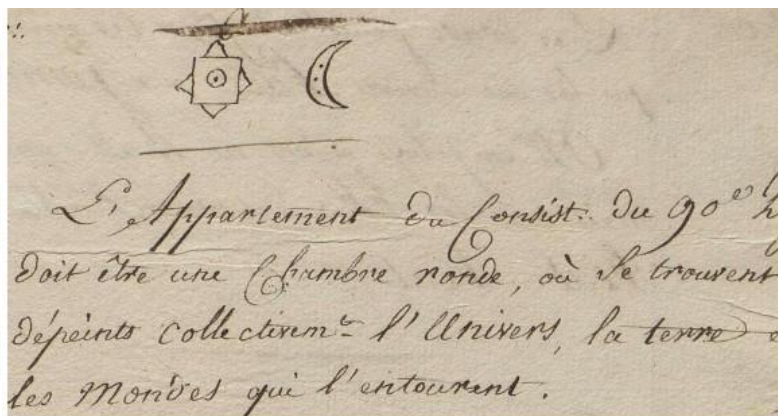 L'Appartement du Consist: du 90e
doit être une Chambre ronde, où se trouvent
dépeints collectivemt l'Univers, la terre
les Mondes qui l'entourent.